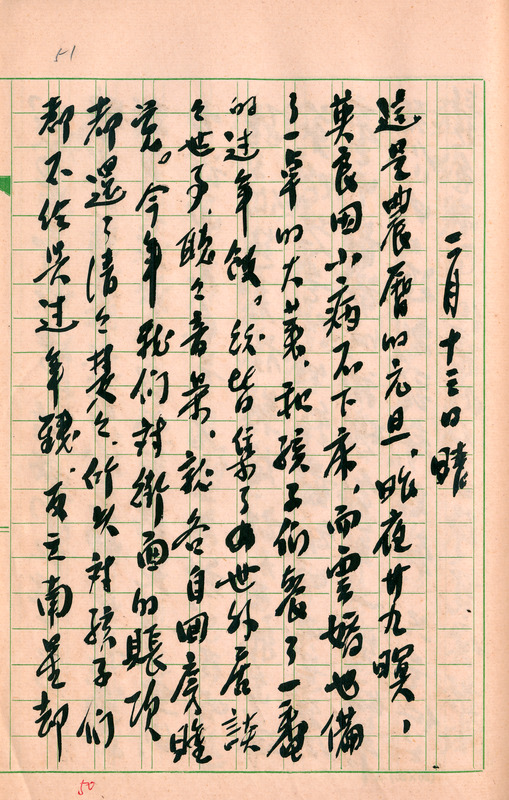 51
二月十三日 晴
這是農曆的元旦。昨夜廿九暝，
英良因小病不下床，而雲婚也備
了一桌的大菜，和孩子們餐了一番
的过年飯。飯皆集了世外居談
々世事，聽々音樂，就各自回房睡
覺。今年我們对街面的賬項
都還了清々楚々，竹久对孩子們
都不給與过年錢，反之南星却
50